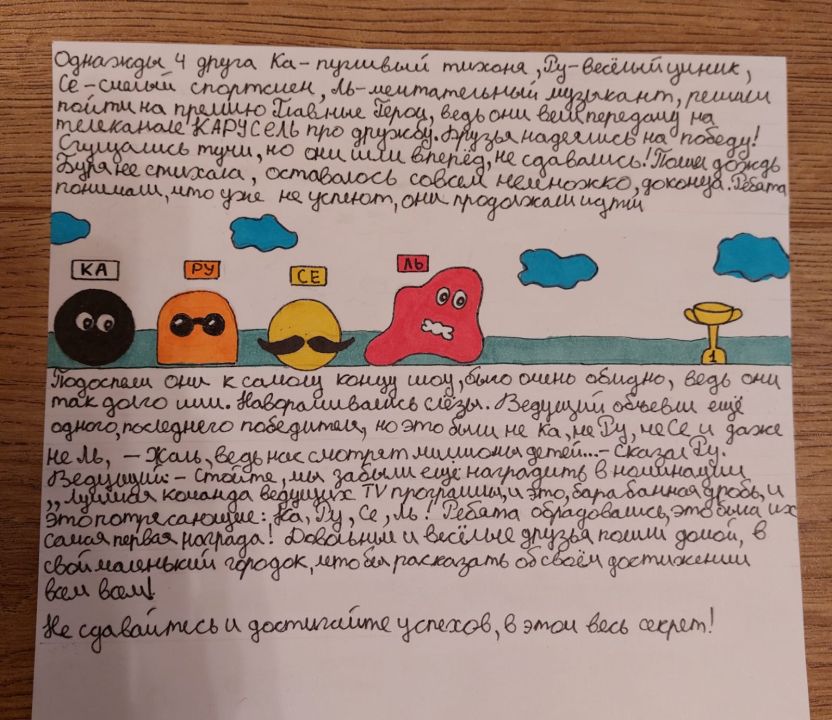 Однажды 4 друга Ка- пугливый тихоня, Ру-весёлый циник,
Се-смелый спортсмен, Ль-мечтательный музыкант, решили
пойти на премию Главные Герои, ведь они вели передачу на
телеканале КАРУСЕЛЬ про дружбу. Друзья надеялись на победу!
Сгущались тучи, но они шли вперёд, не сдавались! Пошёл дождь
Буря не стихала, оставалось совсем немножко, доконца. Ребята
понимали, что уже не успеют, они продолжали идти
КА РУ СЕ ЛЬ
1
Подоспели они к самому концу шоу, было очень обидно, ведь они
так долго шли. Наворачивались слёзы. Ведущий объявил ещё
одного, последнего победителя, но это были не Ка, не Ру, не Се и даже
не Ль, - Жаль, ведь нас смотрят миллионы детей...- Сказал Ру.
Ведущий: - Стойте, мы забыли ещё наградить в номинации
,, Лучшая команда ведущих TV программы, и это, барабанная дробь, и
это потрясающие: Ка, Ру, Се, Ль! Ребята обрадовались, это была их
самая первая награда! Довольные и весёлые друзья пошли домой, в
свой маленький городок, что бы расказать об своём достижении
всем всем!
Не сдавайтесь и достигайте успехов, в этом весь секрет!